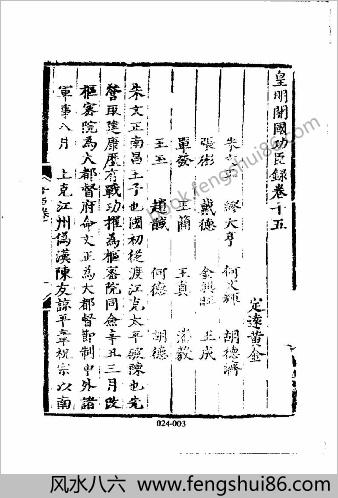 皇明開國功臣錄卷十五
定遠黃金
朱文正 繆大亨 何文輝 胡德濟
張彬 戴德 金興旺 王成
單發 王蕳 王真
王玉 趙 何德 胡德
朱文正南昌王子也國初從渡江克太平破陳也先
營取建康歷有戰功擢為樞密院同僉辛丑三月改
樞密院為大都督府命文正為大都督節制中外諸
軍事八月 上克江州偽漢陳友諒平章祝宗以南
024-003
book.fengshui86.com
风水八六 www.fengshui86.com